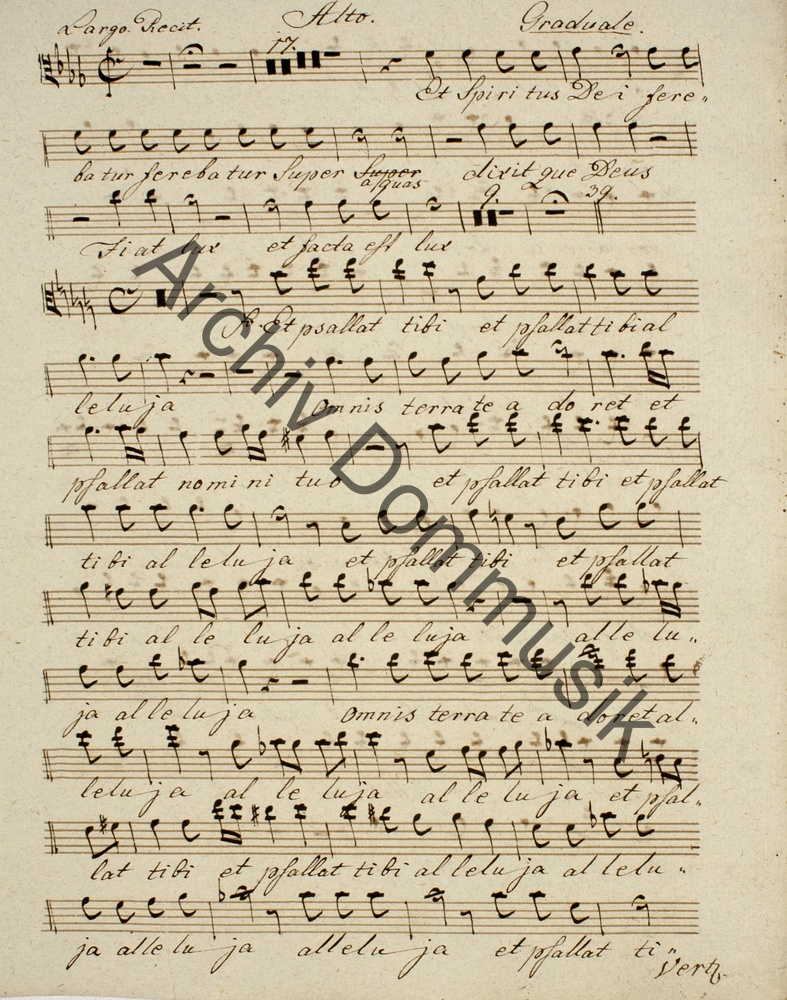 Largo. Recit. Alto. Graduale.
17.
Et Spiri tus De i fere„
ba tur ferebatur Super Super dixit que Deus
aquas
9. 39.
Fiat lux et facta est lux
Et psallat tibi et psallat tibi al
leluja Omnis terra te a do ret et
psallat nomi ni tuo et psallat tibi et psallat
tibi al lelu ja et psallat tibi et psallat
tibi al le lu ja al le luja alle lu„
ja al le lu ja Omnis terra te a doret al„
lelu ja al le luja al le lu ja et psal„
lat tibi et psallat tibi al lelu ja al lelu„
ja alle lu ja allelu ja et psallat ti„
Vert.
Archiv Dommusik